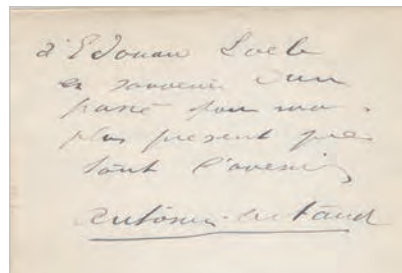 à Edouard Loeb
en souvenir d'un
passé pour moi
plus présent que
tout l'avenir
antonin artaud